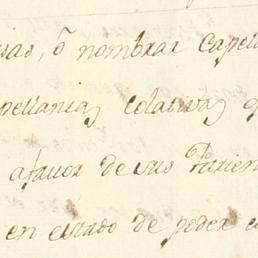 ò nombrar Capel
pellanias colativas q
afavor de sus Parien
en estado de poder